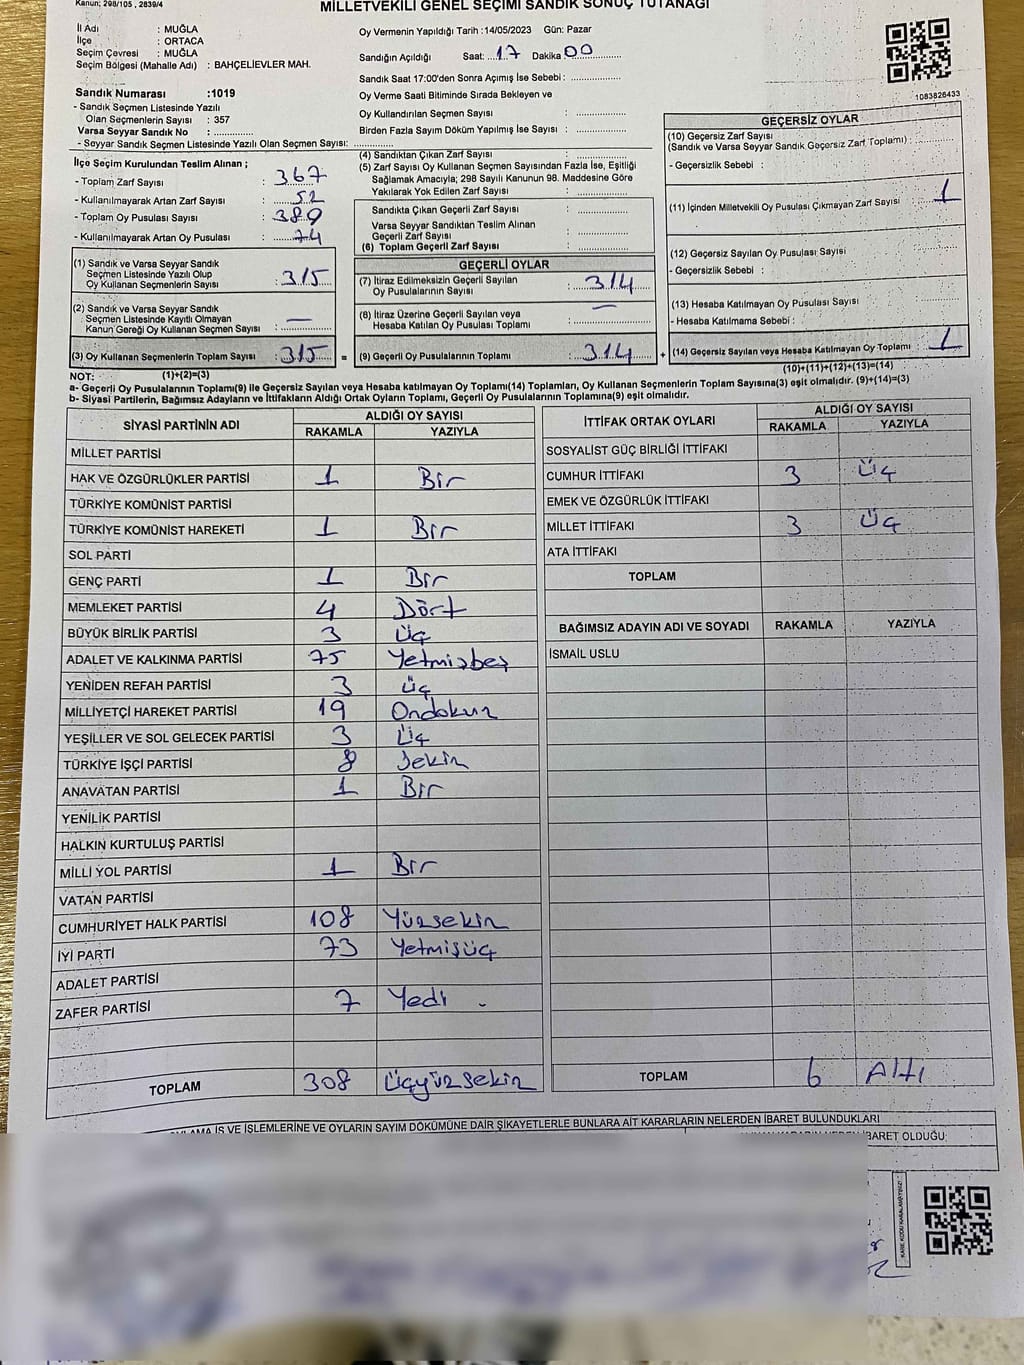 Kanun; 298/105 , 2839/4
MİLLETVEKİLİ GENEL SEÇİMİ SANDIK SONUÇ TUTANAĞI
İl Adı : MUĞLA
İlçe : ORTACA
Seçim Çevresi : MUĞLA
Seçim Bölgesi (Mahalle Adı) : BAHÇELİEVLER MAH.
Sandık Numarası :1019
- Sandık Seçmen Listesinde Yazılı
Olan Seçmenlerin Sayısı : 357
Varsa Seyyar Sandık No :
- Seyyar Sandık Seçmen Listesinde Yazılı Olan Seçmen Sayısı:
Oy Vermenin Yapıldığı Tarih :14/05/2023 Gün: Pazar
Sandığın Açıldığı Saat: 17 Dakika 00
Sandık Saat 17:00'den Sonra Açımış İse Sebebi :
Oy Verme Saati Bitiminde Sırada Bekleyen ve
Oy Kullandırılan Seçmen Sayısı :
Birden Fazla Sayım Döküm Yapılmış İse Sayısı :
1083826433
İlçe Seçim Kurulundan Teslim Alınan ;
- Toplam Zarf Sayısı : 367
- Kullanılmayarak Artan Zarf Sayısı : 52
- Toplam Oy Pusulası Sayısı : 389
- Kullanılmayarak Artan Oy Pusulası : 74
(1) Sandık ve Varsa Seyyar Sandık
Seçmen Listesinde Yazılı Olup
Oy Kullanan Seçmenlerin Sayısı : 315
(2) Sandık ve Varsa Seyyar Sandık
Seçmen Listesinde Kayıtlı Olmayan
Kanun Gereği Oy Kullanan Seçmen Sayısı : —
(3) Oy Kullanan Seçmenlerin Toplam Sayısı : 315 =
(4) Sandıktan Çıkan Zarf Sayısı :
(5) Zarf Sayısı Oy Kullanan Seçmen Sayısından Fazla İse, Eşitliği
Sağlamak Amacıyla; 298 Sayılı Kanunun 98. Maddesine Göre
Yakılarak Yok Edilen Zarf Sayısı :
Sandıkta Çıkan Geçerli Zarf Sayısı :
Varsa Seyyar Sandıktan Teslim Alınan
Geçerli Zarf Sayısı :
(6) Toplam Geçerli Zarf Sayısı :
GEÇERLİ OYLAR
(7) İtiraz Edilmeksizin Geçerli Sayılan
Oy Pusulalarının Sayısı : 314
(8) İtiraz Üzerine Geçerli Sayılan veya
Hesaba Katılan Oy Pusulası Toplamı : —
(9) Geçerli Oy Pusulalarının Toplamı : 314 +
GEÇERSİZ OYLAR
(10) Geçersiz Zarf Sayısı
(Sandık ve Varsa Seyyar Sandık Geçersiz Zarf Toplamı) :
- Geçersizlik Sebebi :
(11) İçinden Milletvekili Oy Pusulası Çıkmayan Zarf Sayısı 1
(12) Geçersiz Sayılan Oy Pusulası Sayısı
- Geçersizlik Sebebi :
(13) Hesaba Katılmayan Oy Pusulası Sayısı
- Hesaba Katılmama Sebebi :
(14) Geçersiz Sayılan veya Hesaba Katılmayan Oy Toplamı 1
NOT: (1)+(2)=(3) (10)+(11)+(12)+(13)=(14)
a- Geçerli Oy Pusulalarının Toplamı(9) ile Geçersiz Sayılan veya Hesaba katılmayan Oy Toplamı(14) Toplamları, Oy Kullanan Seçmenlerin Toplam Sayısına(3) eşit olmalıdır. (9)+(14)=(3)
b- Siyasi Partilerin, Bağımsız Adayların ve İttifakların Aldığı Ortak Oyların Toplamı, Geçerli Oy Pusulalarının Toplamına(9) eşit olmalıdır.
SİYASİ PARTİNİN ADI ALDIĞI OY SAYISI
RAKAMLA YAZIYLA
MİLLET PARTİSİ
HAK VE ÖZGÜRLÜKLER PARTİSİ 1 Bir
TÜRKİYE KOMÜNİST PARTİSİ
TÜRKİYE KOMÜNİST HAREKETİ 1 Bir
SOL PARTİ
GENÇ PARTİ 1 Bir
MEMLEKET PARTİSİ 4 Dört
BÜYÜK BİRLİK PARTİSİ 3 Üç
ADALET VE KALKINMA PARTİSİ 75 Yetmişbeş
YENİDEN REFAH PARTİSİ 3 Üç
MİLLİYETÇİ HAREKET PARTİSİ 19 Ondokuz
YEŞİLLER VE SOL GELECEK PARTİSİ 3 Üç
TÜRKİYE İŞÇİ PARTİSİ 8 Sekiz
ANAVATAN PARTİSİ 1 Bir
YENİLİK PARTİSİ
HALKIN KURTULUŞ PARTİSİ
MİLLİ YOL PARTİSİ 1 Bir
VATAN PARTİSİ
CUMHURİYET HALK PARTİSİ 108 Yüzsekiz
İYİ PARTİ 73 Yetmişüç
ADALET PARTİSİ
ZAFER PARTİSİ 7 Yedi .
TOPLAM 308 Üçyüzsekiz
İTTİFAK ORTAK OYLARI ALDIĞI OY SAYISI
RAKAMLA YAZIYLA
SOSYALİST GÜÇ BİRLİĞİ İTTİFAKI
CUMHUR İTTİFAKI 3 Üç
EMEK VE ÖZGÜRLÜK İTTİFAKI
MİLLET İTTİFAKI 3 Üç
ATA İTTİFAKI
TOPLAM
BAĞIMSIZ ADAYIN ADI VE SOYADI RAKAMLA YAZIYLA
İSMAİL USLU
TOPLAM 6 Altı
İŞ VE İŞLEMLERİNE VE OYLARIN SAYIM DÖKÜMÜNE DAİR ŞİKAYETLERLE BUNLARA AİT KARARLARIN NELERDEN İBARET BULUNDUKLARI
İBARET OLDUĞU: